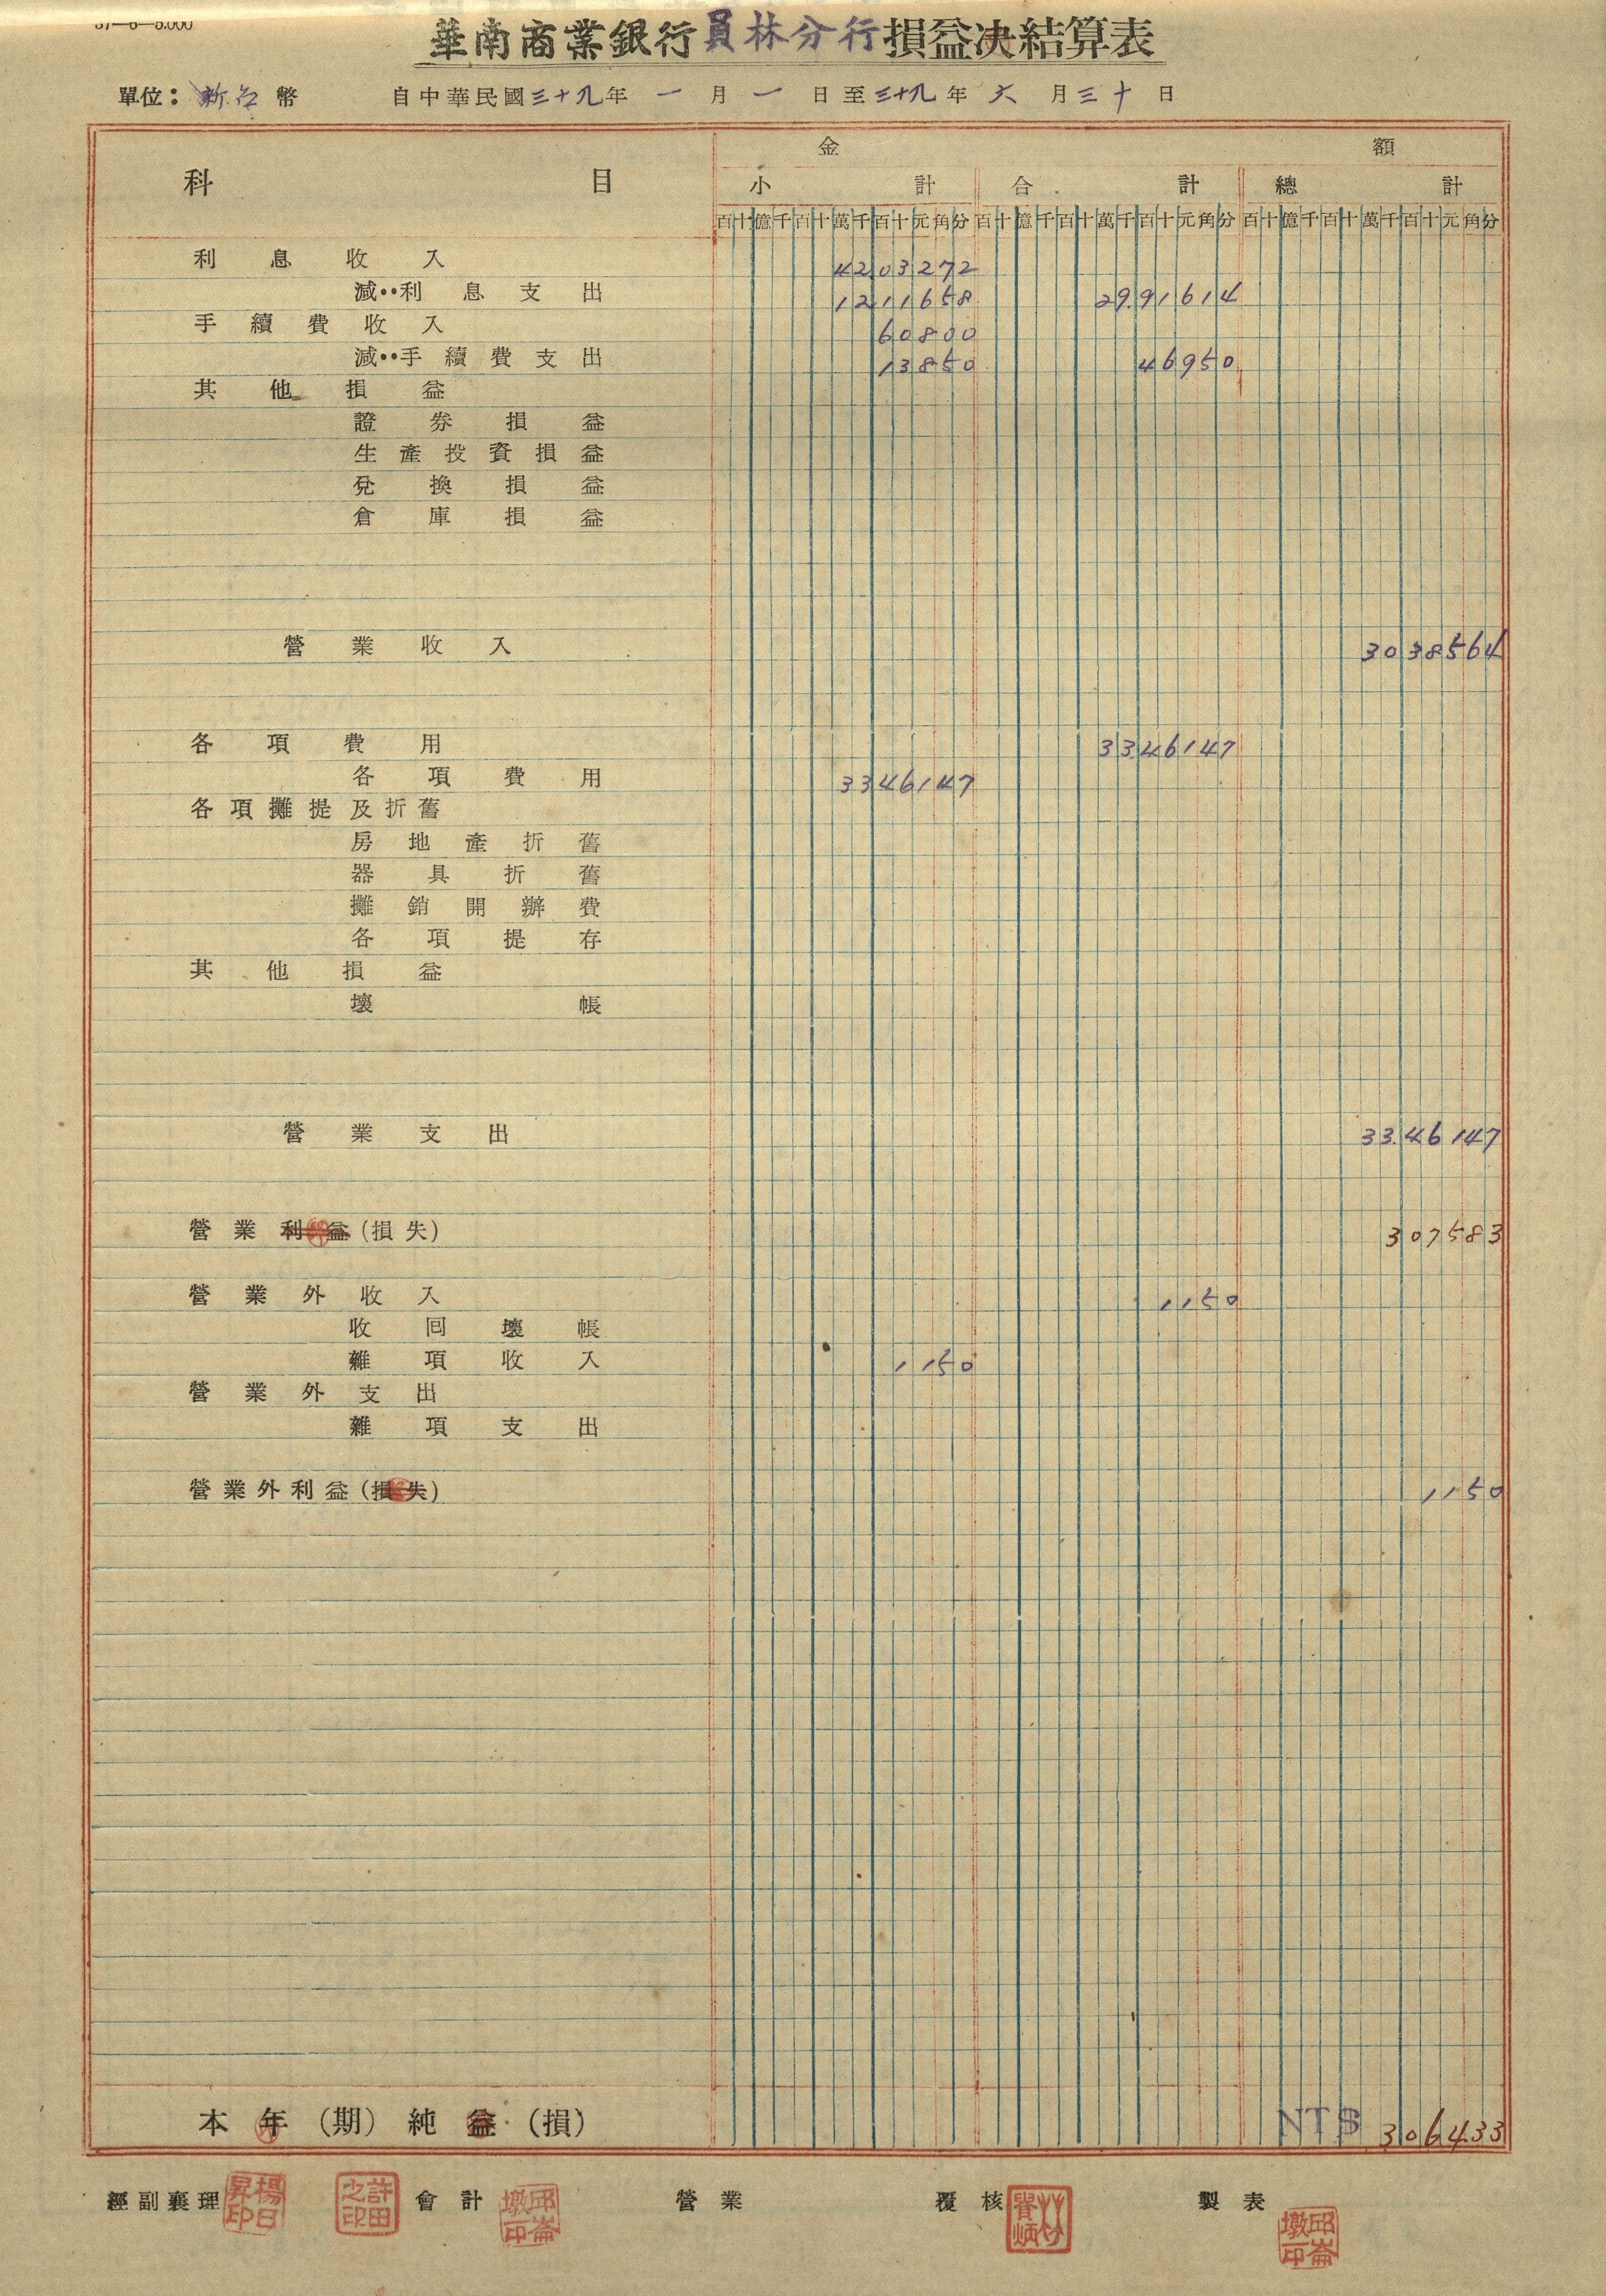 37—6—5.000
華南商業銀行員林分行損益決結算表
單位：新台幣 自中華民國三十九年一月一日至三十九年六月三十日
科目 金額
小計 合計 總計
百十億千百十萬千百十元角分 百十億千百十萬千百十元角分 百十億千百十萬千百十元角分
利息收入 4203272
減‥利息支出 1211658 2991614
手續費收入 60800
減‥手續費支出 13850 46950
其他損益
證券損益
生產投資損益
兌換損益
倉庫損益
營業收入 3038564
各項費用 3346147
各項費用 3346147
各項攤提及折舊
房地產折舊
器具折舊
攤銷開辦費
各項提存
其他損益
壞帳
營業支出 3346147
營業利益(損失) 307583
營業外收入 1150
收回壞帳
雜項收入 1150
營業外支出
雜項支出
營業外利益(損失) 1150
本年(期)純益(損) NT$ 306433
經副襄理 楊日昇印 許田之印 會計 邱崙墩印 營業 覆核 製表 邱崙墩印